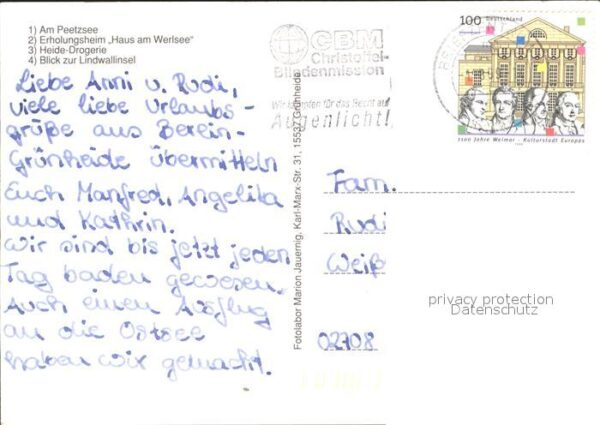 1) Am Peetzsee
2) Erholungsheim „Haus am Werlsee"
3) Heide-Drogerie
4) Blick zur Lindwallinsel
Liebe Anni u. Rudi,
viele liebe Urlaubs-
grüße aus Berlin-
Grünheide übermitteln
Euch Manfred, Angelika
und Kathrin.
Wir sind bis jetzt jeden
Tag baden gewesen.
Auch einen Ausflug
an die Ostsee
haben wir gemacht.
Fotolabor Marion Jauernig, Karl-Marx-Str. 31, 15537 Grünheide
CBM
Christoffel-
Blindenmission
Wir kämpfen für das Recht auf
Augenlicht!
100 Deutschland
1100 Jahre Weimar - Kulturstadt Europas
Fam.
Rudi
Weiß
privacy protection
Datenschutz
02708